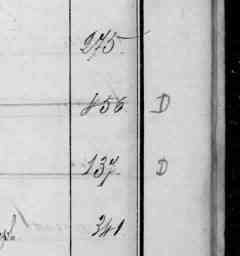 275.
156. D
137. D
341